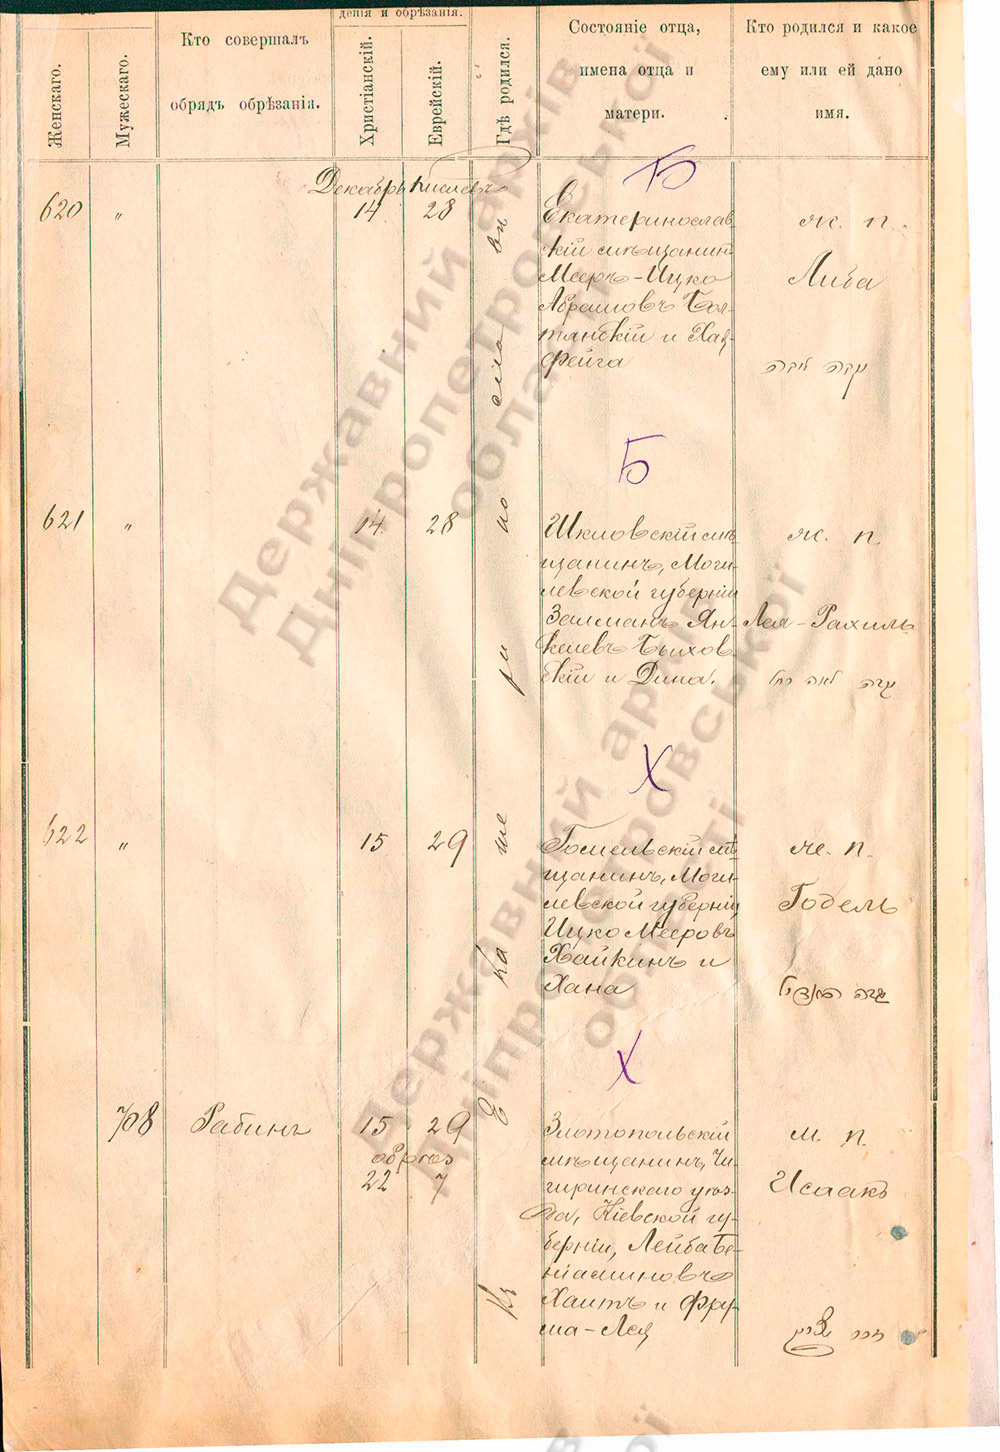 дения и обрѣзанія.
Женскаго.
Мужескаго.
Кто совершалъ
обрядъ обрѣзанія.
Христіанскій.
Еврейскій.
Гдѣ родился.
Состояніе отца,
имена отца и
матери.
Кто родился и какое
ему или ей дано
имя.
Декабрь Кислевъ
Б
620 " 14 28
Екатеринослав-
скій мѣщанинъ
Мееръ-Ицко
Абрамовъ
и Хая-
Фейга
ж. п.
Либа
Б
621 " 14 28
Шкловскій мѣ-
щанинъ, Моги-
левской губерніи
Залманъ Ян-
келевъ Быхов-
скій и Дина.
ж. п.
Лея-Рахиль
לאה רחל
Х
622 " 15 29
Гомельскій мѣ-
щанинъ, Моги-
левской губерніи
Ицко Мееровъ
Хайкинъ и
Хана
ж. п.
Годель
Х
708 Рабинъ 15 29
обрѣз
22 7
Златопольскій
мѣщанинъ, Чи-
гиринскаго уѣз-
да, Кіевской гу-
берніи, Лейба Бе-
ніаминовъ
Хаитъ и Фру-
ма-Лея
м. п.
Исаакъ
Державний архів
Дніпропетровської
області
Державний архів
Дніпропетровської
області